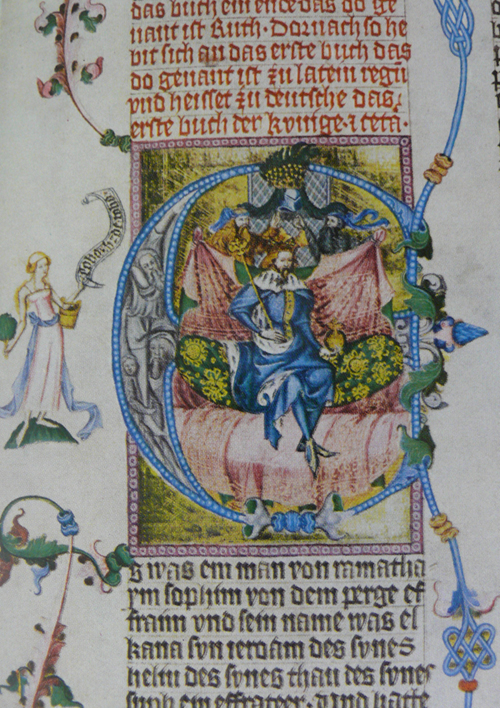 das buch ein ende das do ge
nant ist Ruth. Dornach so he
bit sich an das erste buch das
do genant ist zu latein regū
vnd heisset zu deutsche das
erste buch der kvnige. ⁊ cetā.
E
s was ein man von ramatha
ym sophim von dem perge ef
fraim vnd sein name was el
kana svn ieroam des svnes
heliu des svnes thau des svnes
suph ein effrateer. Vnd hatte